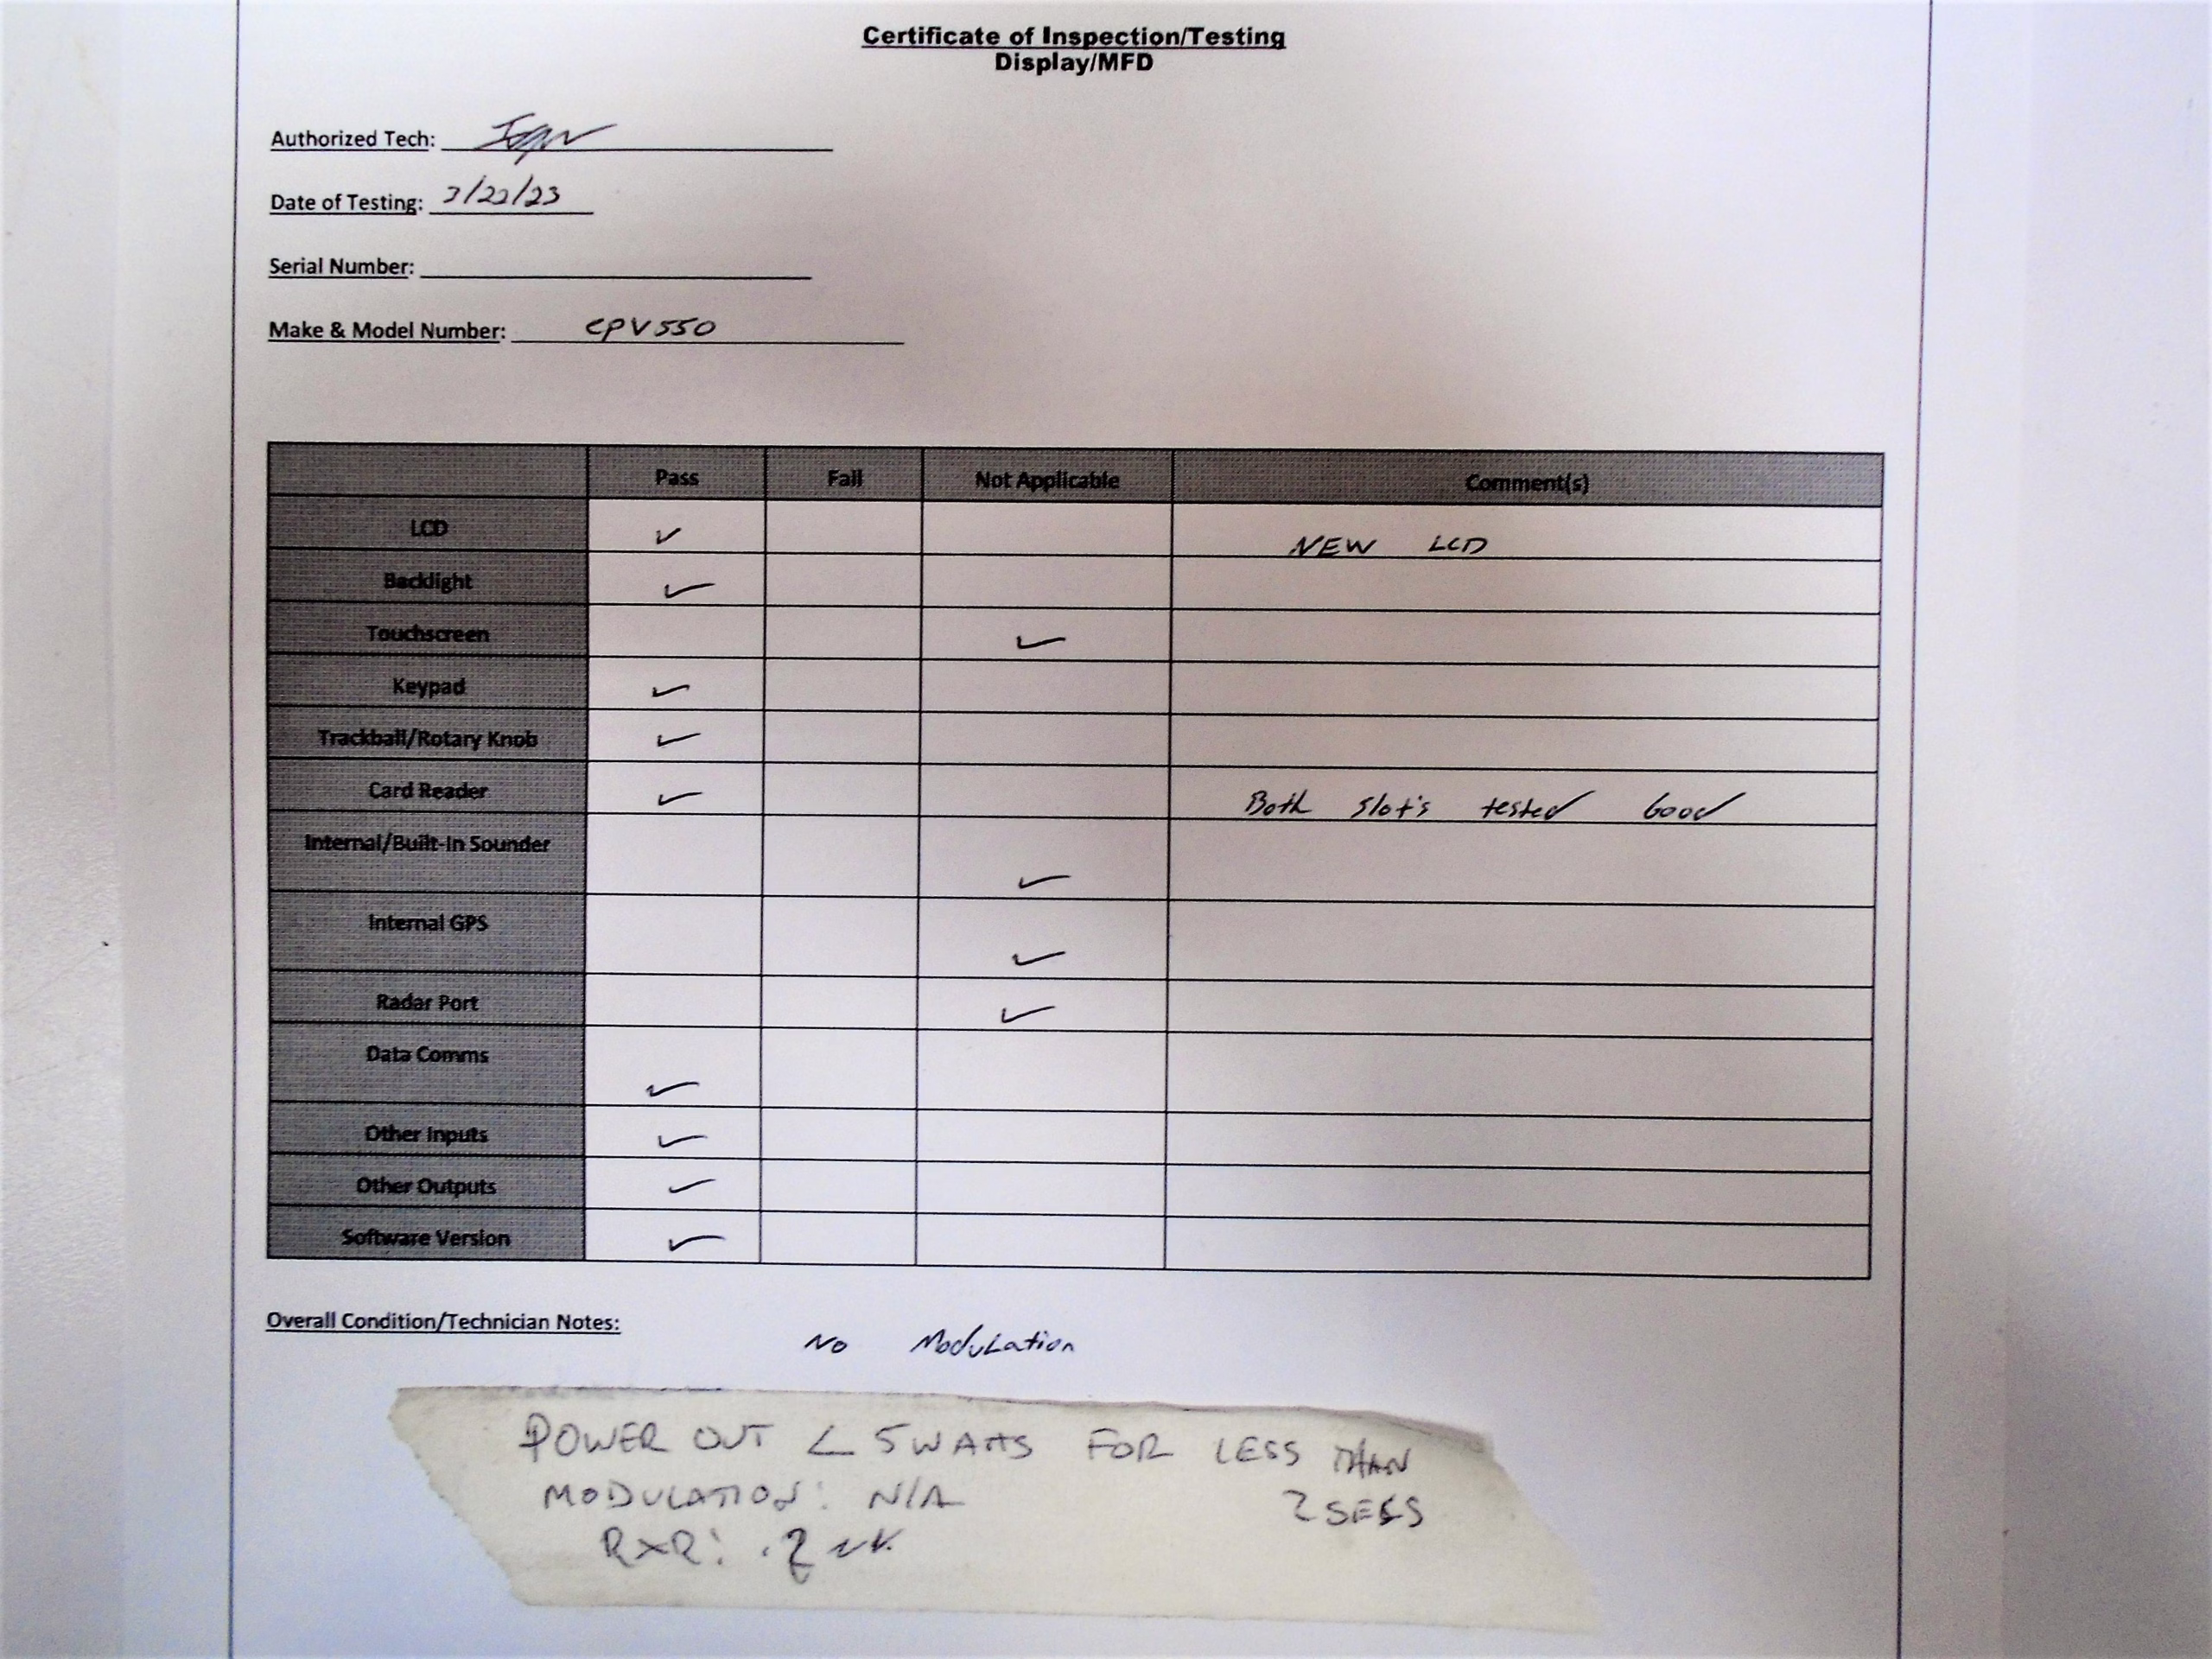 Certificate of Inspection/Testing
Display/MFD
Authorized Tech:
Date of Testing: 3/22/23
Serial Number:
Make & Model Number: CPV550
Pass Fail Not Applicable Comment(s)
LCD ✓ NEW LCD
Backlight ✓
Touchscreen ✓
Keypad ✓
Trackball/Rotary Knob ✓
Card Reader ✓ Both slot's tested Good
Internal/Built-In Sounder ✓
Internal GPS ✓
Radar Port ✓
Data Comms ✓
Other Inputs ✓
Other Outputs ✓
Software Version ✓
Overall Condition/Technician Notes: No Modulation
POWER OUT < 5 WATTS FOR LESS THAN
2 SECS
MODULATION: N/A
RXR: